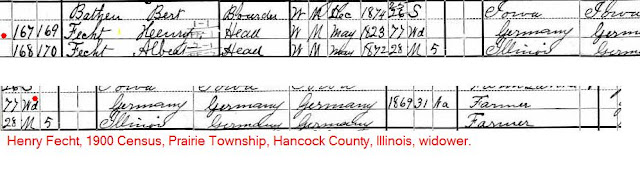 Bathen Bert Bourder W M Dec 1874 26 S Iowa Iowa
167 169 Fecht Henry Head W M May 1823 77 Wd Germany Germ
168 170 Fecht Albert Head W M May 1872 28 M 5 Illinois Germ
77 Wd Germany Germany Germany 1869 31 Na Farmer
28 M 5 Illinois Germany Germany Farmer
Henry Fecht, 1900 Census, Prairie Township, Hancock County, Illinois, widower.